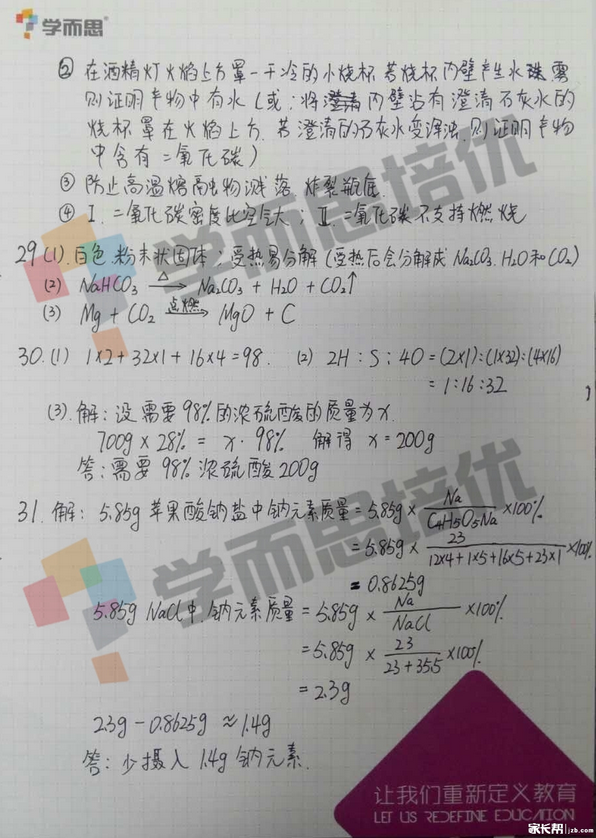 学而思
② 在酒精灯火焰上方罩一干冷的小烧杯,若烧杯内壁产生水珠,雾
则证明产物中有水(或:将内壁沾有澄清石灰水的
烧杯罩在火焰上方,若澄清的石灰水变浑浊,则证明产物
中含有二氧化碳)
③ 防止高温熔融物溅落,炸裂瓶底.
④ Ⅰ.二氧化碳密度比空气大;Ⅱ.二氧化碳不支持燃烧
29.(1).白色.粉末状固体;受热易分解(受热后会分解成Na₂CO₃.H₂O和CO₂)
(2) NaHCO₃ —△→ Na₂CO₃ + H₂O + CO₂↑
(3) Mg + CO₂ —点燃→ MgO + C
30.(1) 1×2+32×1+16×4=98. (2) 2H:S:4O=(2×1):(1×32):(4×16)
=1:16:32
(3).解:设需要98%的浓硫酸的质量为x.
700g×28% = x·98% 解得 x=200g
答:需要98%浓硫酸200g
31.解:5.85g苹果酸钠盐中钠元素质量=5.85g×Na/C₄H₅O₅Na×100%
=5.85g×23/12×4+1×5+16×5+23×1×100%
=0.8625g
5.85g NaCl中.钠元素质量=5.85g×Na/NaCl×100%
=5.85g×23/23+35.5×100%
=2.3g
2.3g-0.8625g≈1.4g
答:少摄入1.4g钠元素.
学而思培优
学而思培优
让我们重新定义教育
LET US REDEFINE EDUCATION
家长帮 jzb.com